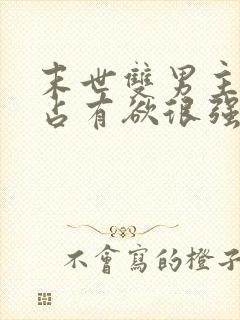 末世雙男主
占有欲很强
不會寫的橙子